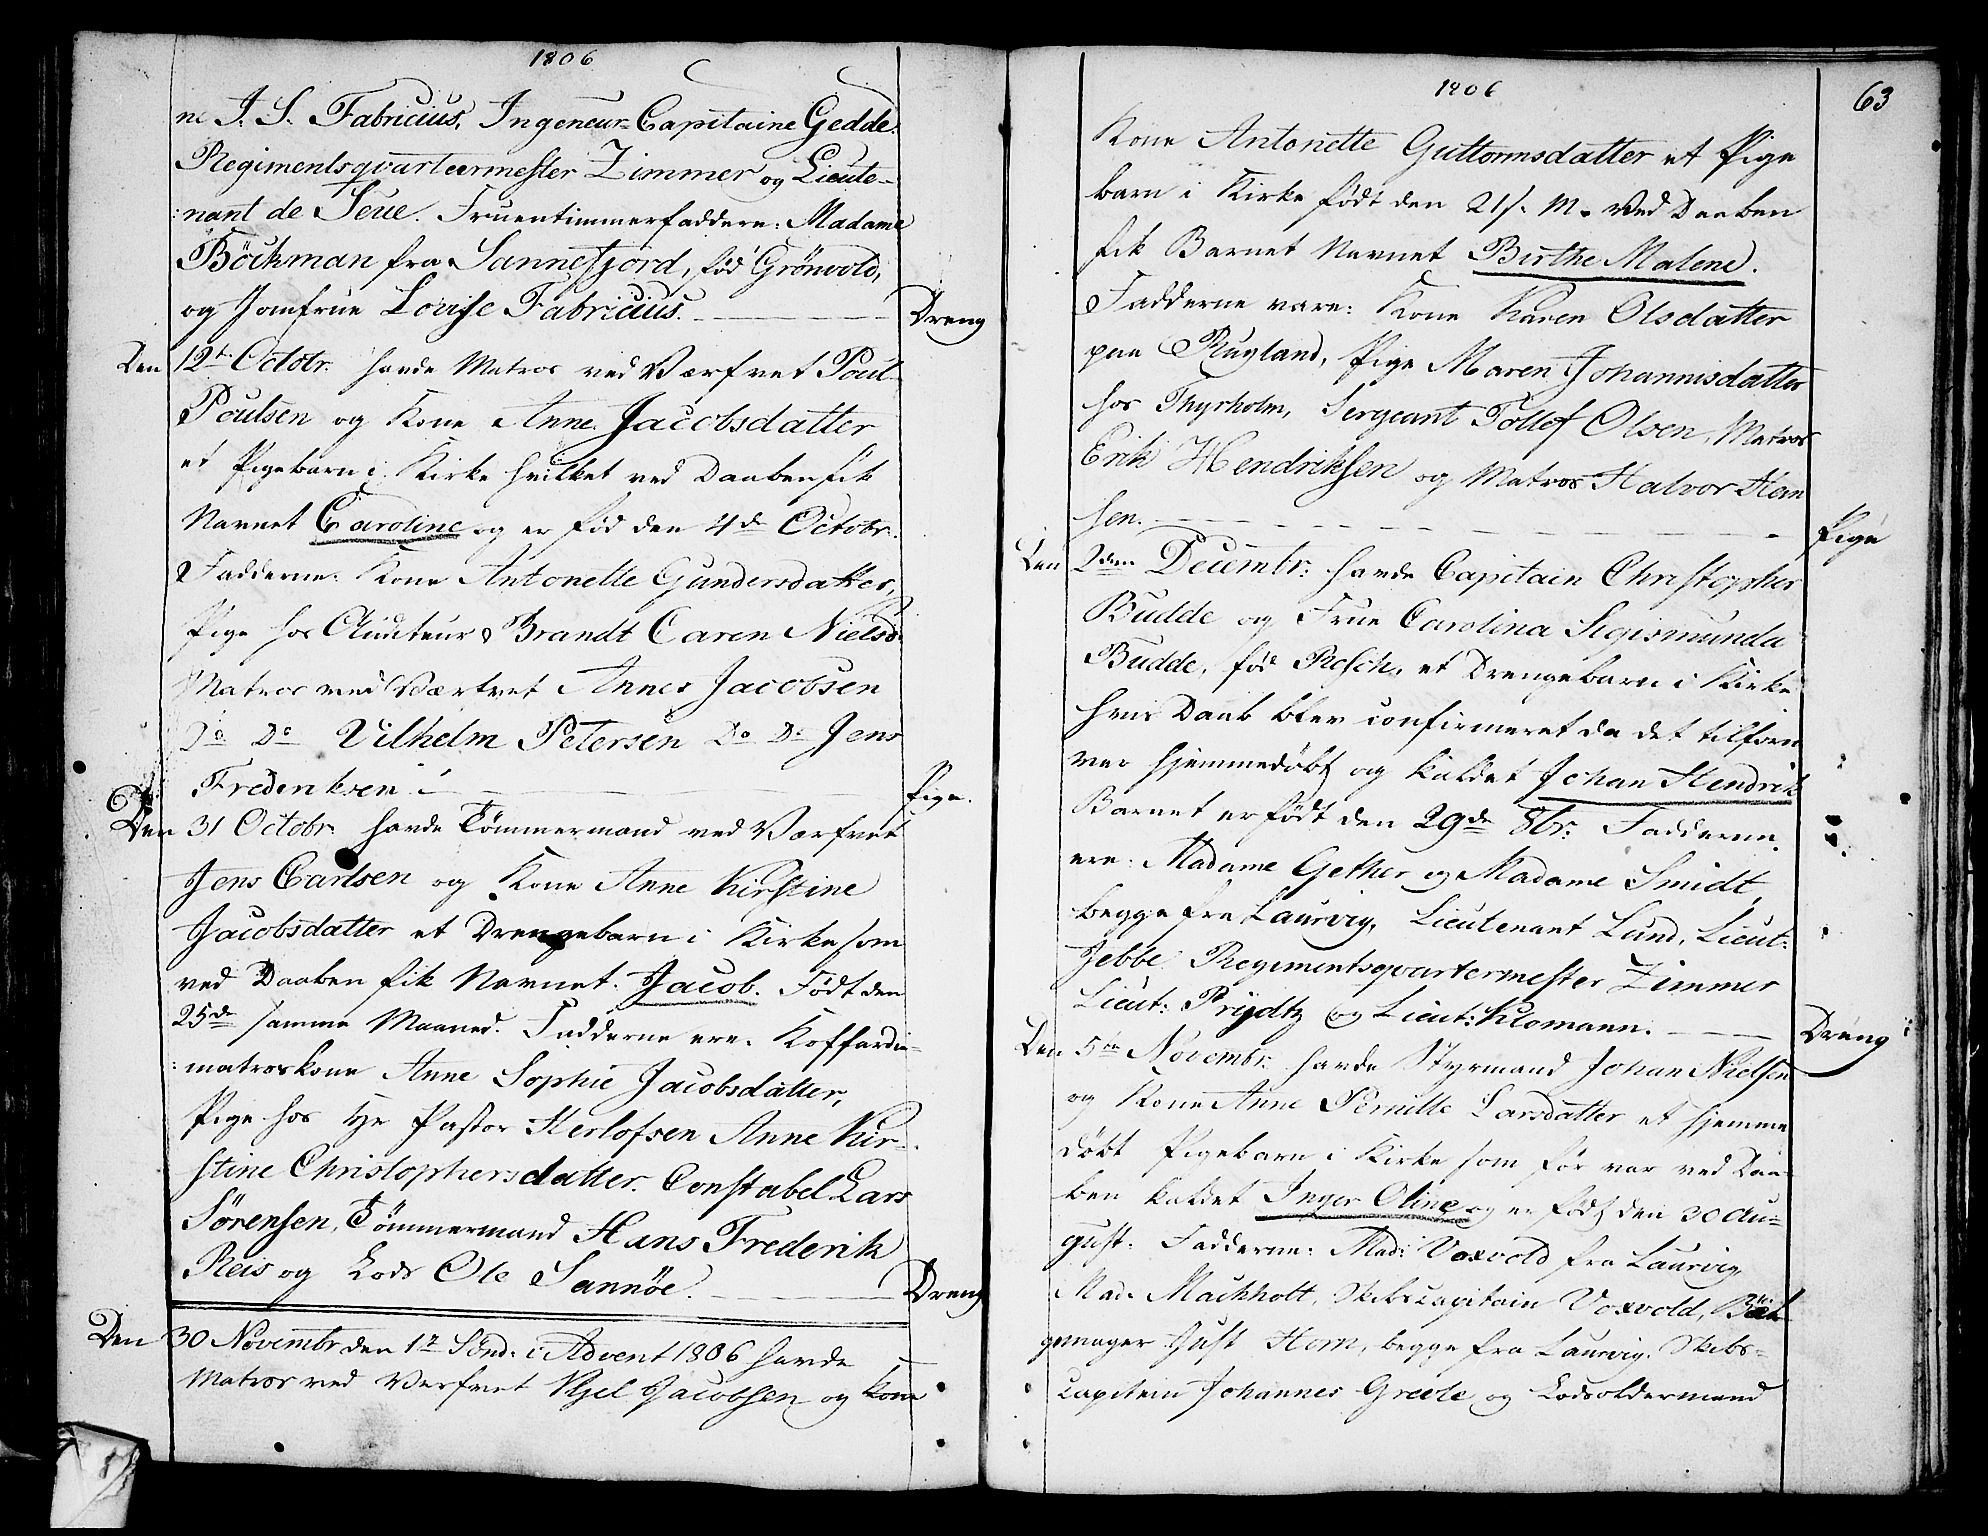 1806
ne J. S. Fabricius, Ingeneur-Capitaine Gedde.
Regimentsqvarteermester Zimmer og Lieute-
:nant de Seue. Fruentimmerfaddere: Madame
Böckman fra Sannefjord, fød Grönvold,
og Jomfrue Lovise Fabricius.
Dreng
Den 12te Octobr. havde Matros ved Værfvet Poul
Poulsen og Kone Anne Jacobsdatter
et Pigebarn i Kirke hvilket ved Daaben fik
Navnet Caroline og er fød den 4de Octobr.
Fadderne: Kone Antonette Gundersdatter,
Pige hos Auditeur Brandt Caren Nielsd.
Matros ved Værfvet Annes Jacobsen
Do Do Vilhelm Petersen Do Do Jens
Frederiksen
Pige.
Den 31 Octobr. havde Tömmermand ved Værfvet
Jens Carlsen og Kone Anne Kirstine
Jacobsdatter et Drengebarn i Kirke som
ved Daaben fik Navnet. Jacob. Födt den
25de samme Maaned. Fadderne ere. Koffardie-
:matroskone Anne Sophie Jacobsdatter,
Pige hos Hr Pastor Herlofsen Anne Kir-
stine Christophersdatter. Constabel Lars
Sörensen, Tömmermand Hans Frederik
Reis og Lods Ole Sannöe.
Dreng
Den 30 Novembr den 1te Sönd. i Advent 1806 havde
Matros ved Verfvet Kjel Jacobsen og Kone
1806
63
Kone Antonette Guttormsdatter et Pige
barn i Kirke født den 21/. M. Ved Daaben
fik Barnet Navnet Birthe Malene.
Fadderne vare: Kone Karen Olsdatter
paa Rugland, Pige Maren Johannisdatter
hos Thyrholm, Sergeant Tollef Olsen, Matros
Erik Hendriksen og Matros Halvor Han
sen.
Pige
Den 2den Decembr: havde Capitain Christopher
Budde og Frue Carolina Sigismunda
Budde, fød Resch, et Drengebarn i Kirke
hvis Daab blev confirmeret da det tilforn
var hjemmedøbt og kaldet Johan Hendrik
Barnet er født den 29de 8br: Fadderne
ere: Madame Gether og Madame Smidt,
begge fra Laurvig, Lieutenant Lund, Lieut:
Jebbe Regimentsqvartermester Zimmer
Lieut: Prydtz og Lieut: Klomann.
Dreng
Den 5te Novembr. havde Styrmand Johan Nielsen
og Kone Anne Pernille Larsdatter et hjemme
döbt Pigebarn i Kirke som før var ved Daa-
ben kaldet Inger Oline og er født den 30 Au-
gust. Fadderne: Mad: Voxvold fra Laurvig,
Mad. Mackholt, Skibscapitain Voxvold,
gemager Just Horn, begge fra Laurvig. Skibs-
capitain Johannes Greele og Lodsoldermand